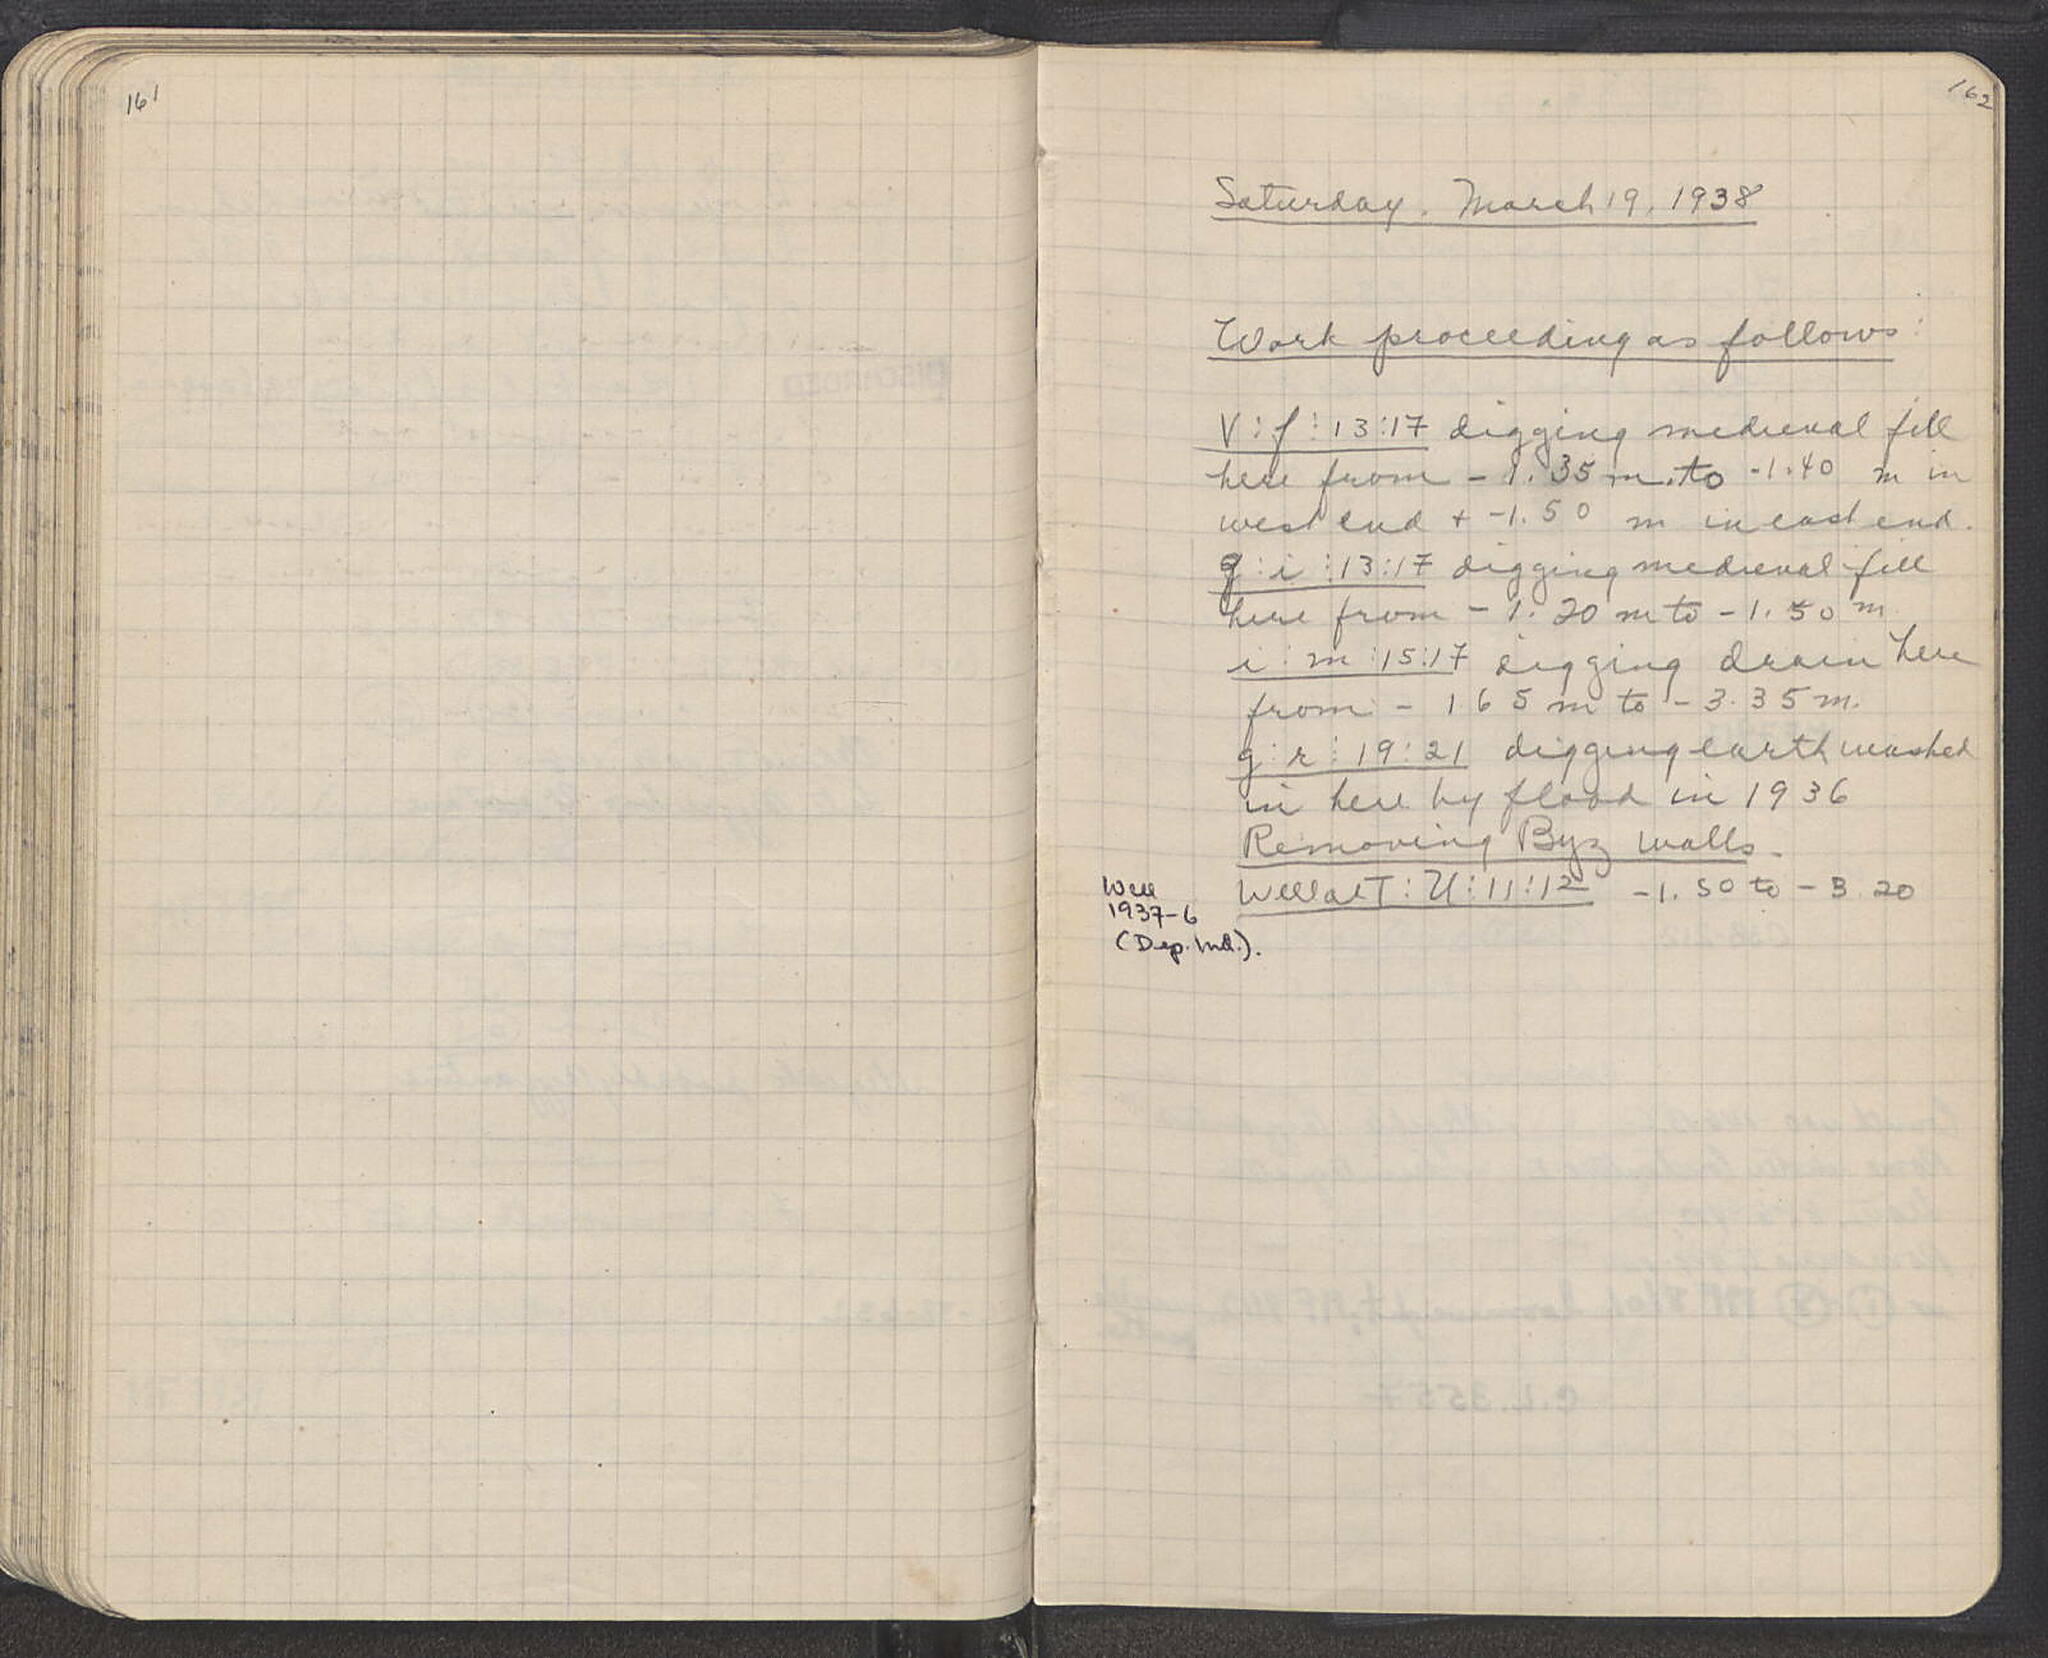 161
162
Saturday, March 19, 1938
Work proceeding as follows:
V:f:13:17 digging medieval fill
here from - 1.35 m. to -1.40 m in
west end + -1.50 m in east end.
g:i:13:17 digging medieval fill
here from - 1.20 m to - 1.50 m
i:m:15:17 digging drain here
from - 1 65 m to - 3.35 m.
g:r:19:21 digging earth washed
in here by flood in 1936
Removing Byz walls -
Well at T:U:11:12 -1.50 to - 3.20
Well
1937-6
(Dep. Ind.).